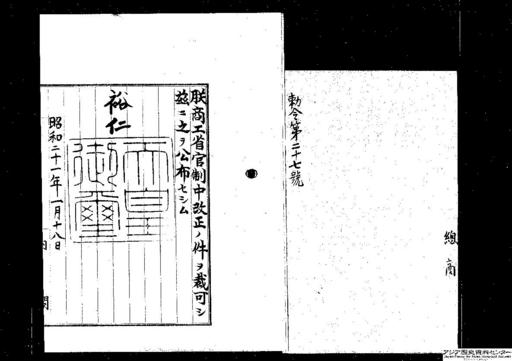 勅令第二十七號
總
商
朕商工省官制中改正ノ件ヲ裁可シ
茲ニ之ヲ公布セシム
裕仁
天皇
御璽
昭和二十一年一月十八日
アジア歴史資料センター